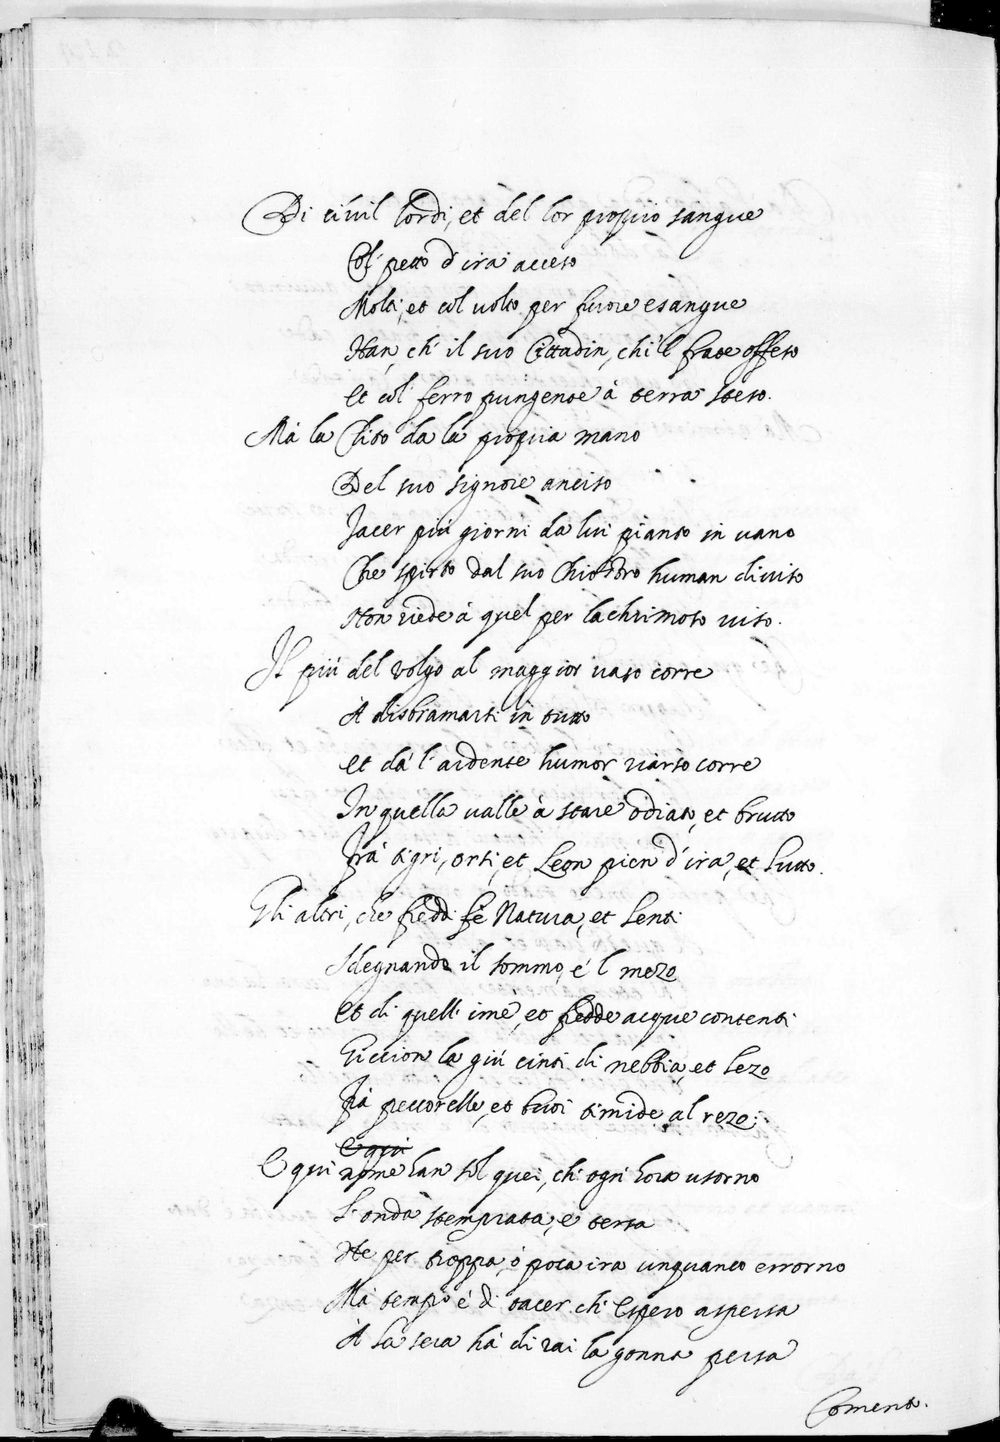 Di civil lordi, et del lor proprio sangue
Col petto d'ira acceso
Molti, et col volto per furore esangue
Han, ch'il suo Cittadin, chi'l frate offeso
Et col ferro pungente à terra steso.
Mà la Clito da la propria mano
Del suo signore anciso
Jacer più giorni da lui pianto in vano
Che spirto dal suo Chiostro human diviso
Non riede à quel per lachrimoso viso.
Il più del volgo al maggior vaso corre
A disbramarsi in tutto
Et dà l'ardente humor riarso corre
In quella valle à stare odiato, et brutto
Frà tigri, orsi, et Leon pien d'ira, et lutto.
Gli altri, che freddi fè Natura, et lenti
Sdegnando il sommo, e'l mezo
Et di quell'ime, et fredde acque contenti
Giccion la giù cinti di nebbia, et lezo
Frà peccorelle, et buoi timide al rezo;
E qui
E qui nome han sol quei, ch'ogni hora usorno
L'onda stemprata, e tersa
Ne per troppa, ò poca ira unquanco errorno
Mà tempo è di tacer, ch'Espero aspersa
A la sera hà di rai la gonna persa
Coment.